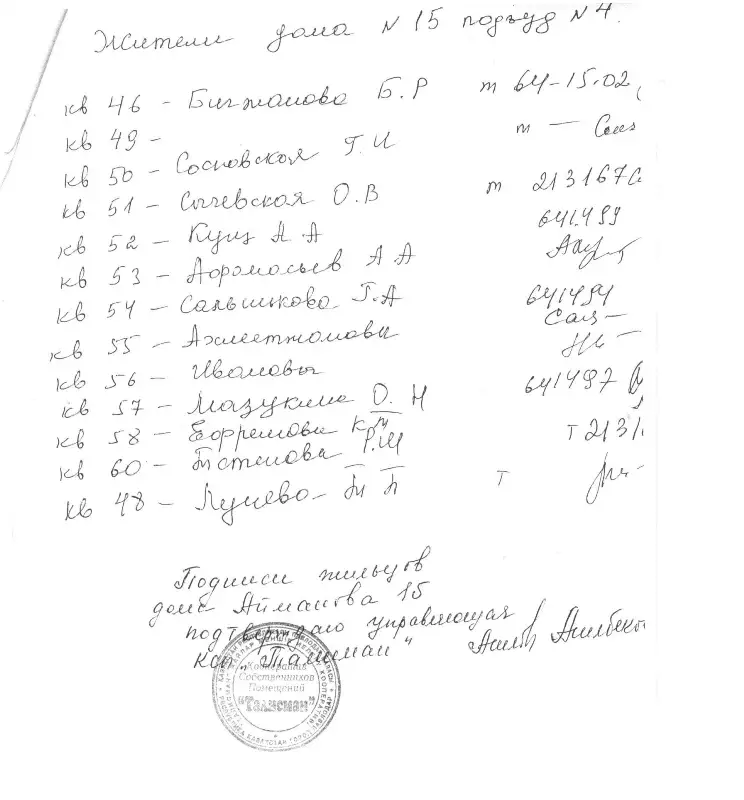 Жители дома N 15 подъезд N 4.
кв 46 - Бигжанова Б.Р т 64-15.02
кв 49 -
кв 50 - Сосновская Г.И т —
кв 51 - Сычевская О.В т 213167
кв 52 - Кунц А А 641499
кв 53 - А А
кв 54 - Сальникова Г.А 641494
кв 55 - Ахметжановы
кв 56 - Ивановы
кв 57 - Мазукина О. Н 641497
кв 58 - Ефремова К
кв 60 - Р.Ш Т 213
кв 48 - Лунева Т П Т
Подписи жильцов
дома Айманова 15
подтверждаю управляющая
кск "Талисман"
Кооператив
Собственников
Помещений
"Талисман"